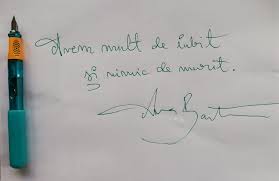 Avem mult de iubit
și nimic de murit.
Ana Barton